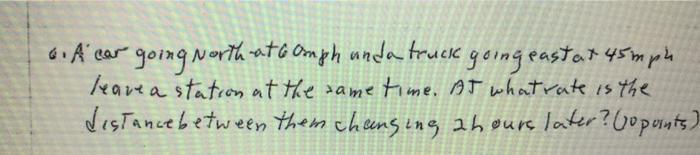 6. A car going North at 60mph and a truck going east at 45mph
leave a station at the same time. At what rate is the
distance between them changing 2hours later? (10points)